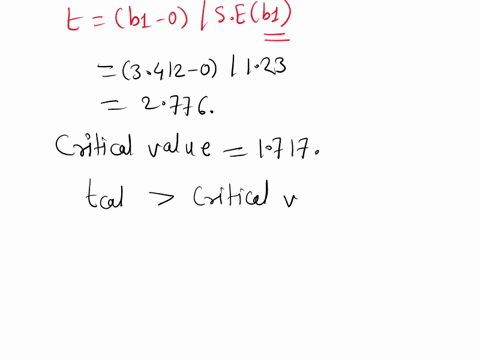 t = (b1-0) / S.E(b1)
= (3.412-0) / 1.23
= 2.776.
Critical value = 1.717.
tcal > Critical v